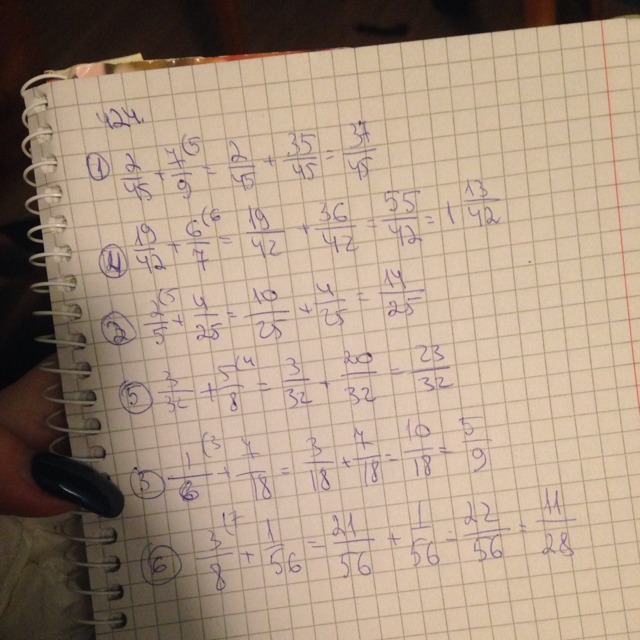 424.
① 2/45 + 7/9 (5 = 2/45 + 35/45 = 37/45
④ 19/42 + 6/7 (6 = 19/42 + 36/42 = 55/42 = 1 13/42
② 2/5 (5 + 4/25 = 10/25 + 4/25 = 14/25
⑤ 3/32 + 5/8 (4 = 3/32 + 20/32 = 23/32
③ 1/6 (3 + 7/18 = 3/18 + 7/18 = 10/18 = 5/9
⑥ 3/8 (7 + 1/56 = 21/56 + 1/56 = 22/56 = 11/28